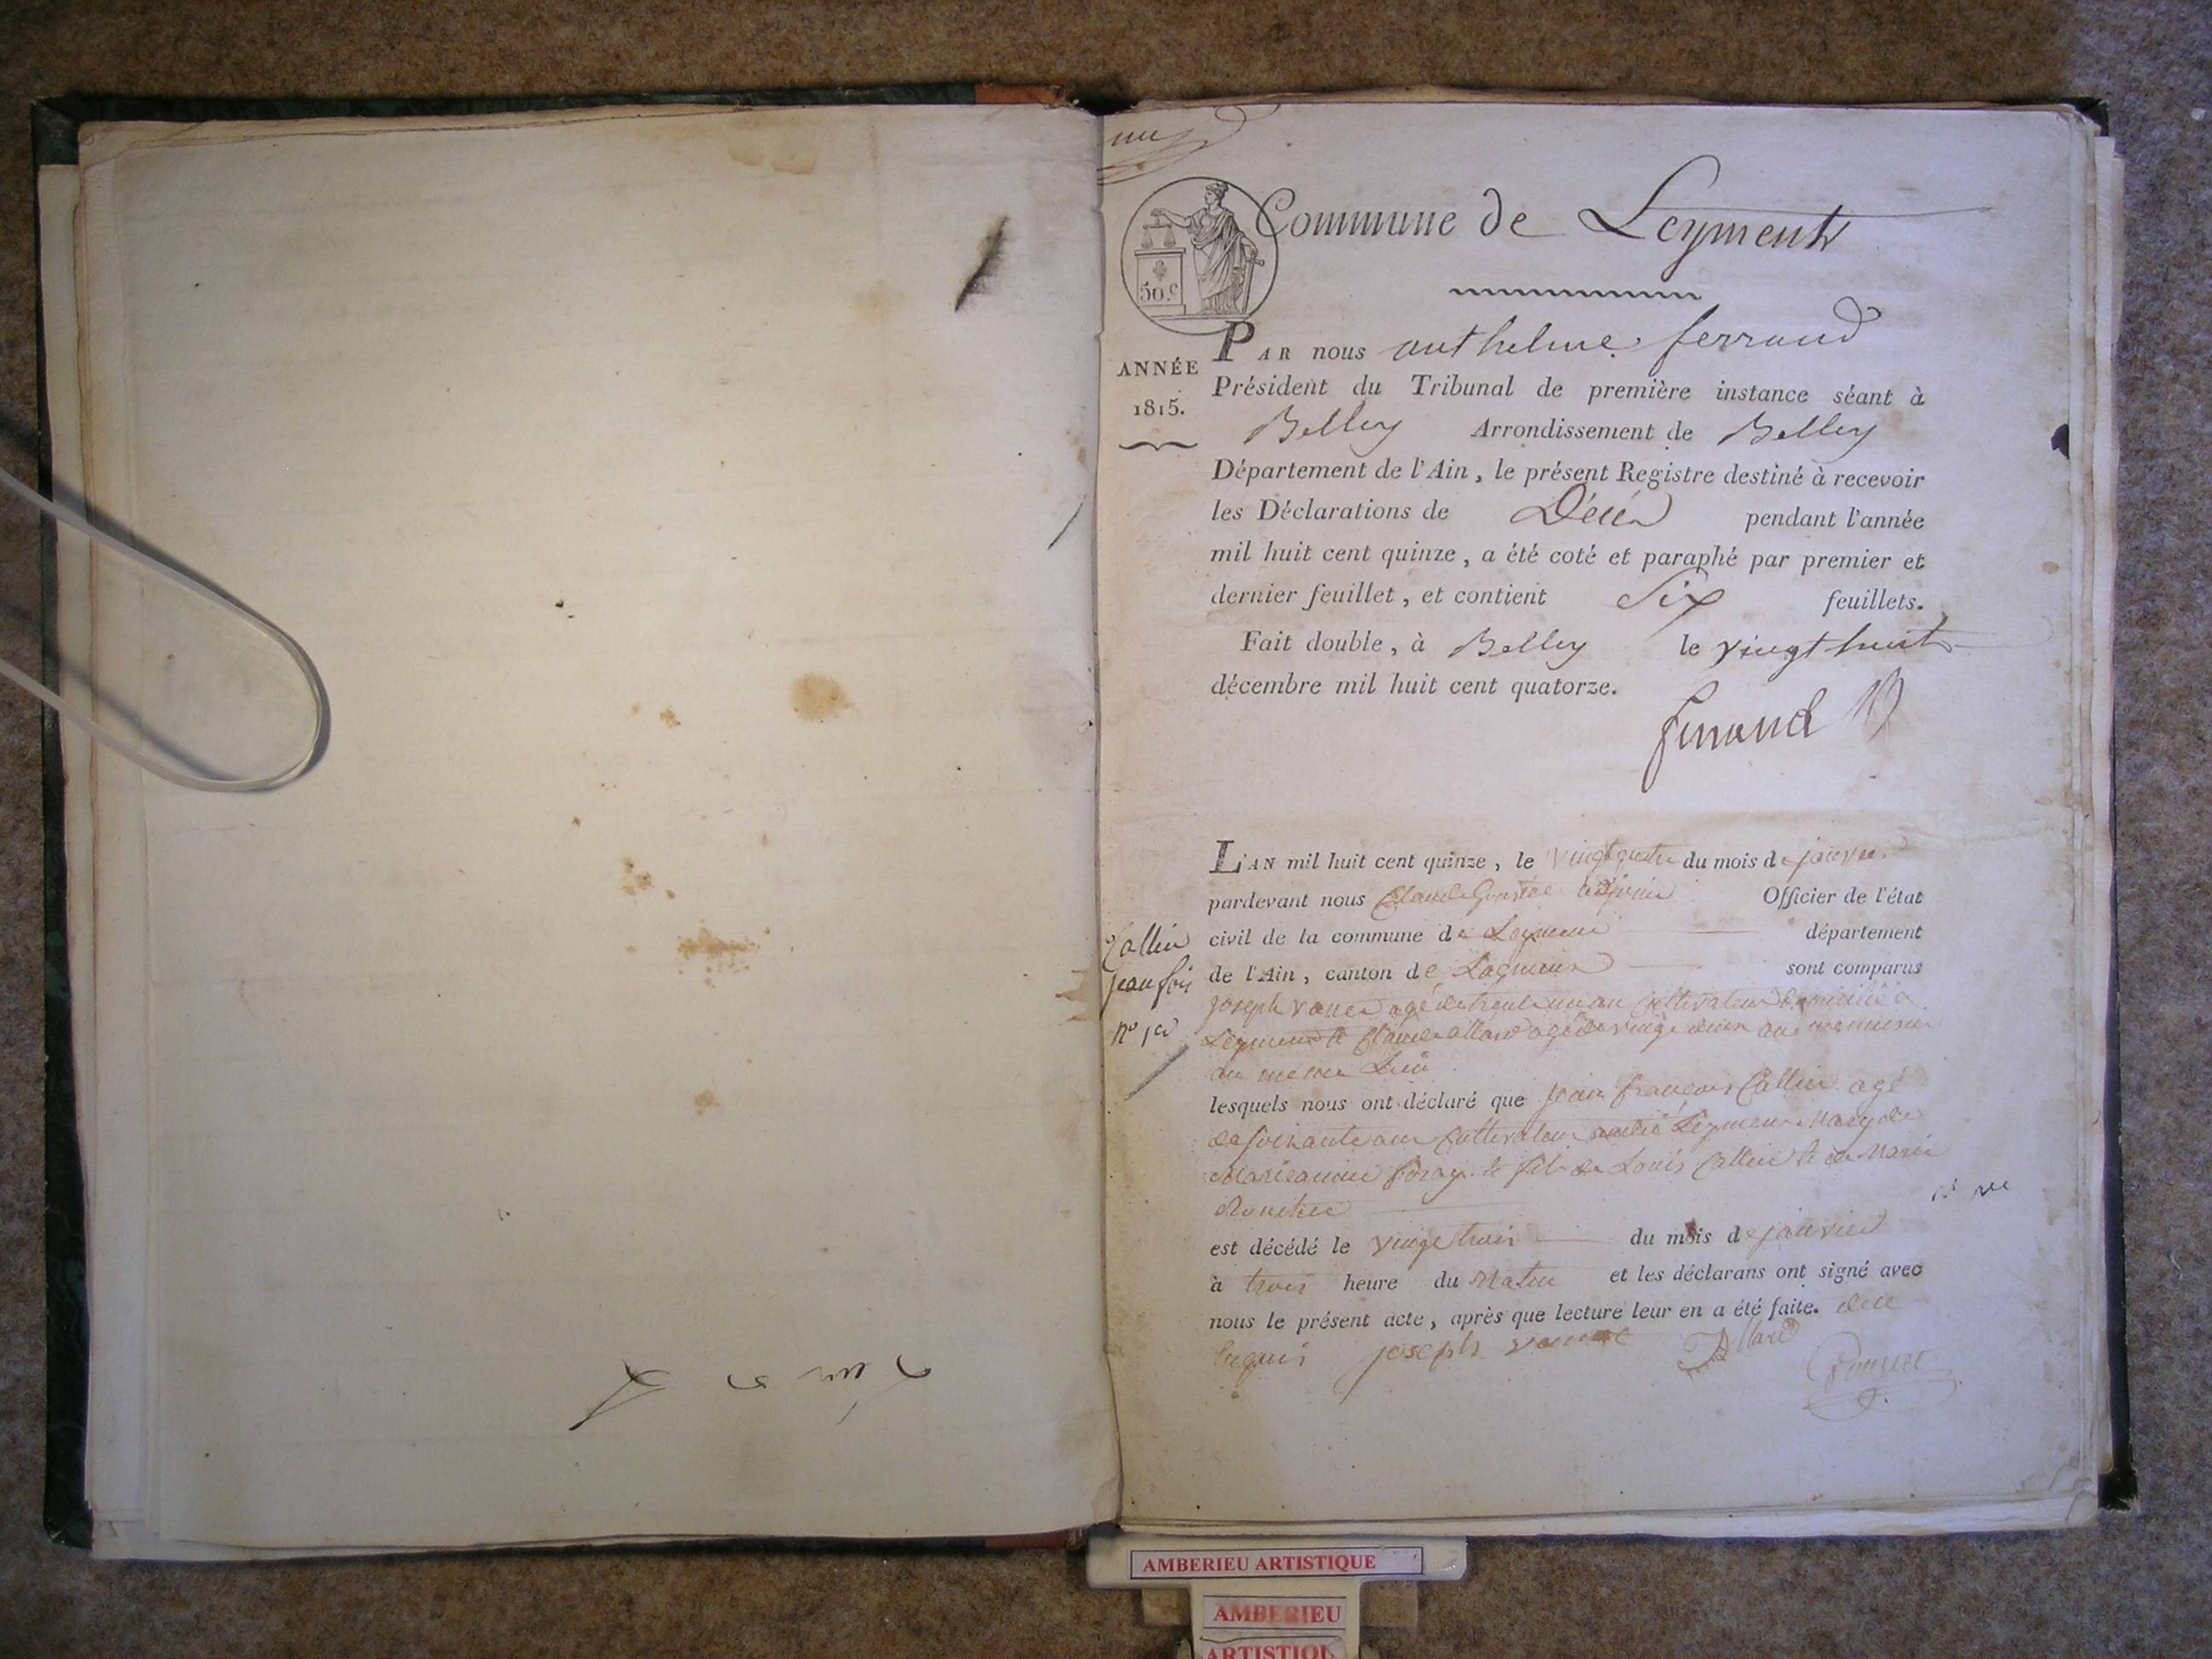 Commune de Leyment
50.c
PAR nous anthelme ferrand
ANNÉE
1815.
Président du Tribunal de première instance séant à
Belley Arrondissement de Belley
Département de l'Ain, le présent Registre destiné à recevoir
les Déclarations de Décès pendant l'année
mil huit cent quinze, a été coté et paraphé par premier et
dernier feuillet, et contient Six feuillets.
Fait double, à Belley le vingt huit
décembre mil huit cent quatorze.
ferrand
L'AN mil huit cent quinze, le vingt quatre du mois de janvier
pardevant nous Claude adjoint Officier de l'état
civil de la commune de Leyment département
de l'Ain, canton de Lagnieu sont comparus
Callin
jean fois
no 1er
joseph agé de trente un an cultivateur domicilié à
Leyment et Claude allard agé de vingt deux ans menuisier
du meme Lieu
lesquels nous ont déclaré que jean françois Callin agé
de soixante ans Cultivateur Leyment Mary de
Marieanne le fils de Louis Callin et de Marie
est décédé le vingt trois du mois de janvier
à trois heure du Matin et les déclarans ont signé avec
nous le présent acte, après que lecture leur en a été faite.
requis joseph Allard
AMBERIEU ARTISTIQUE
AMBERIEU
ARTISTIQU